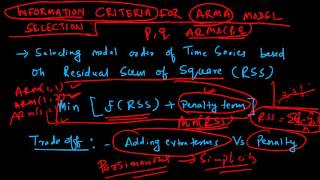 INFORMATION CRITERIA FOR ARMA MODEL
SELECTION :- P, q ARMA(P,q)
→ Selecting model order of Time Series based
on Residual Sum of Square (RSS)
ARMA(1,1)
ARMA(1,2)
Min [ f(RSS) + Penalty term ]
Min(RSS)
RSS =
Trade off :- Adding extra terms Vs Penalty
Parsimonious → Simplicity